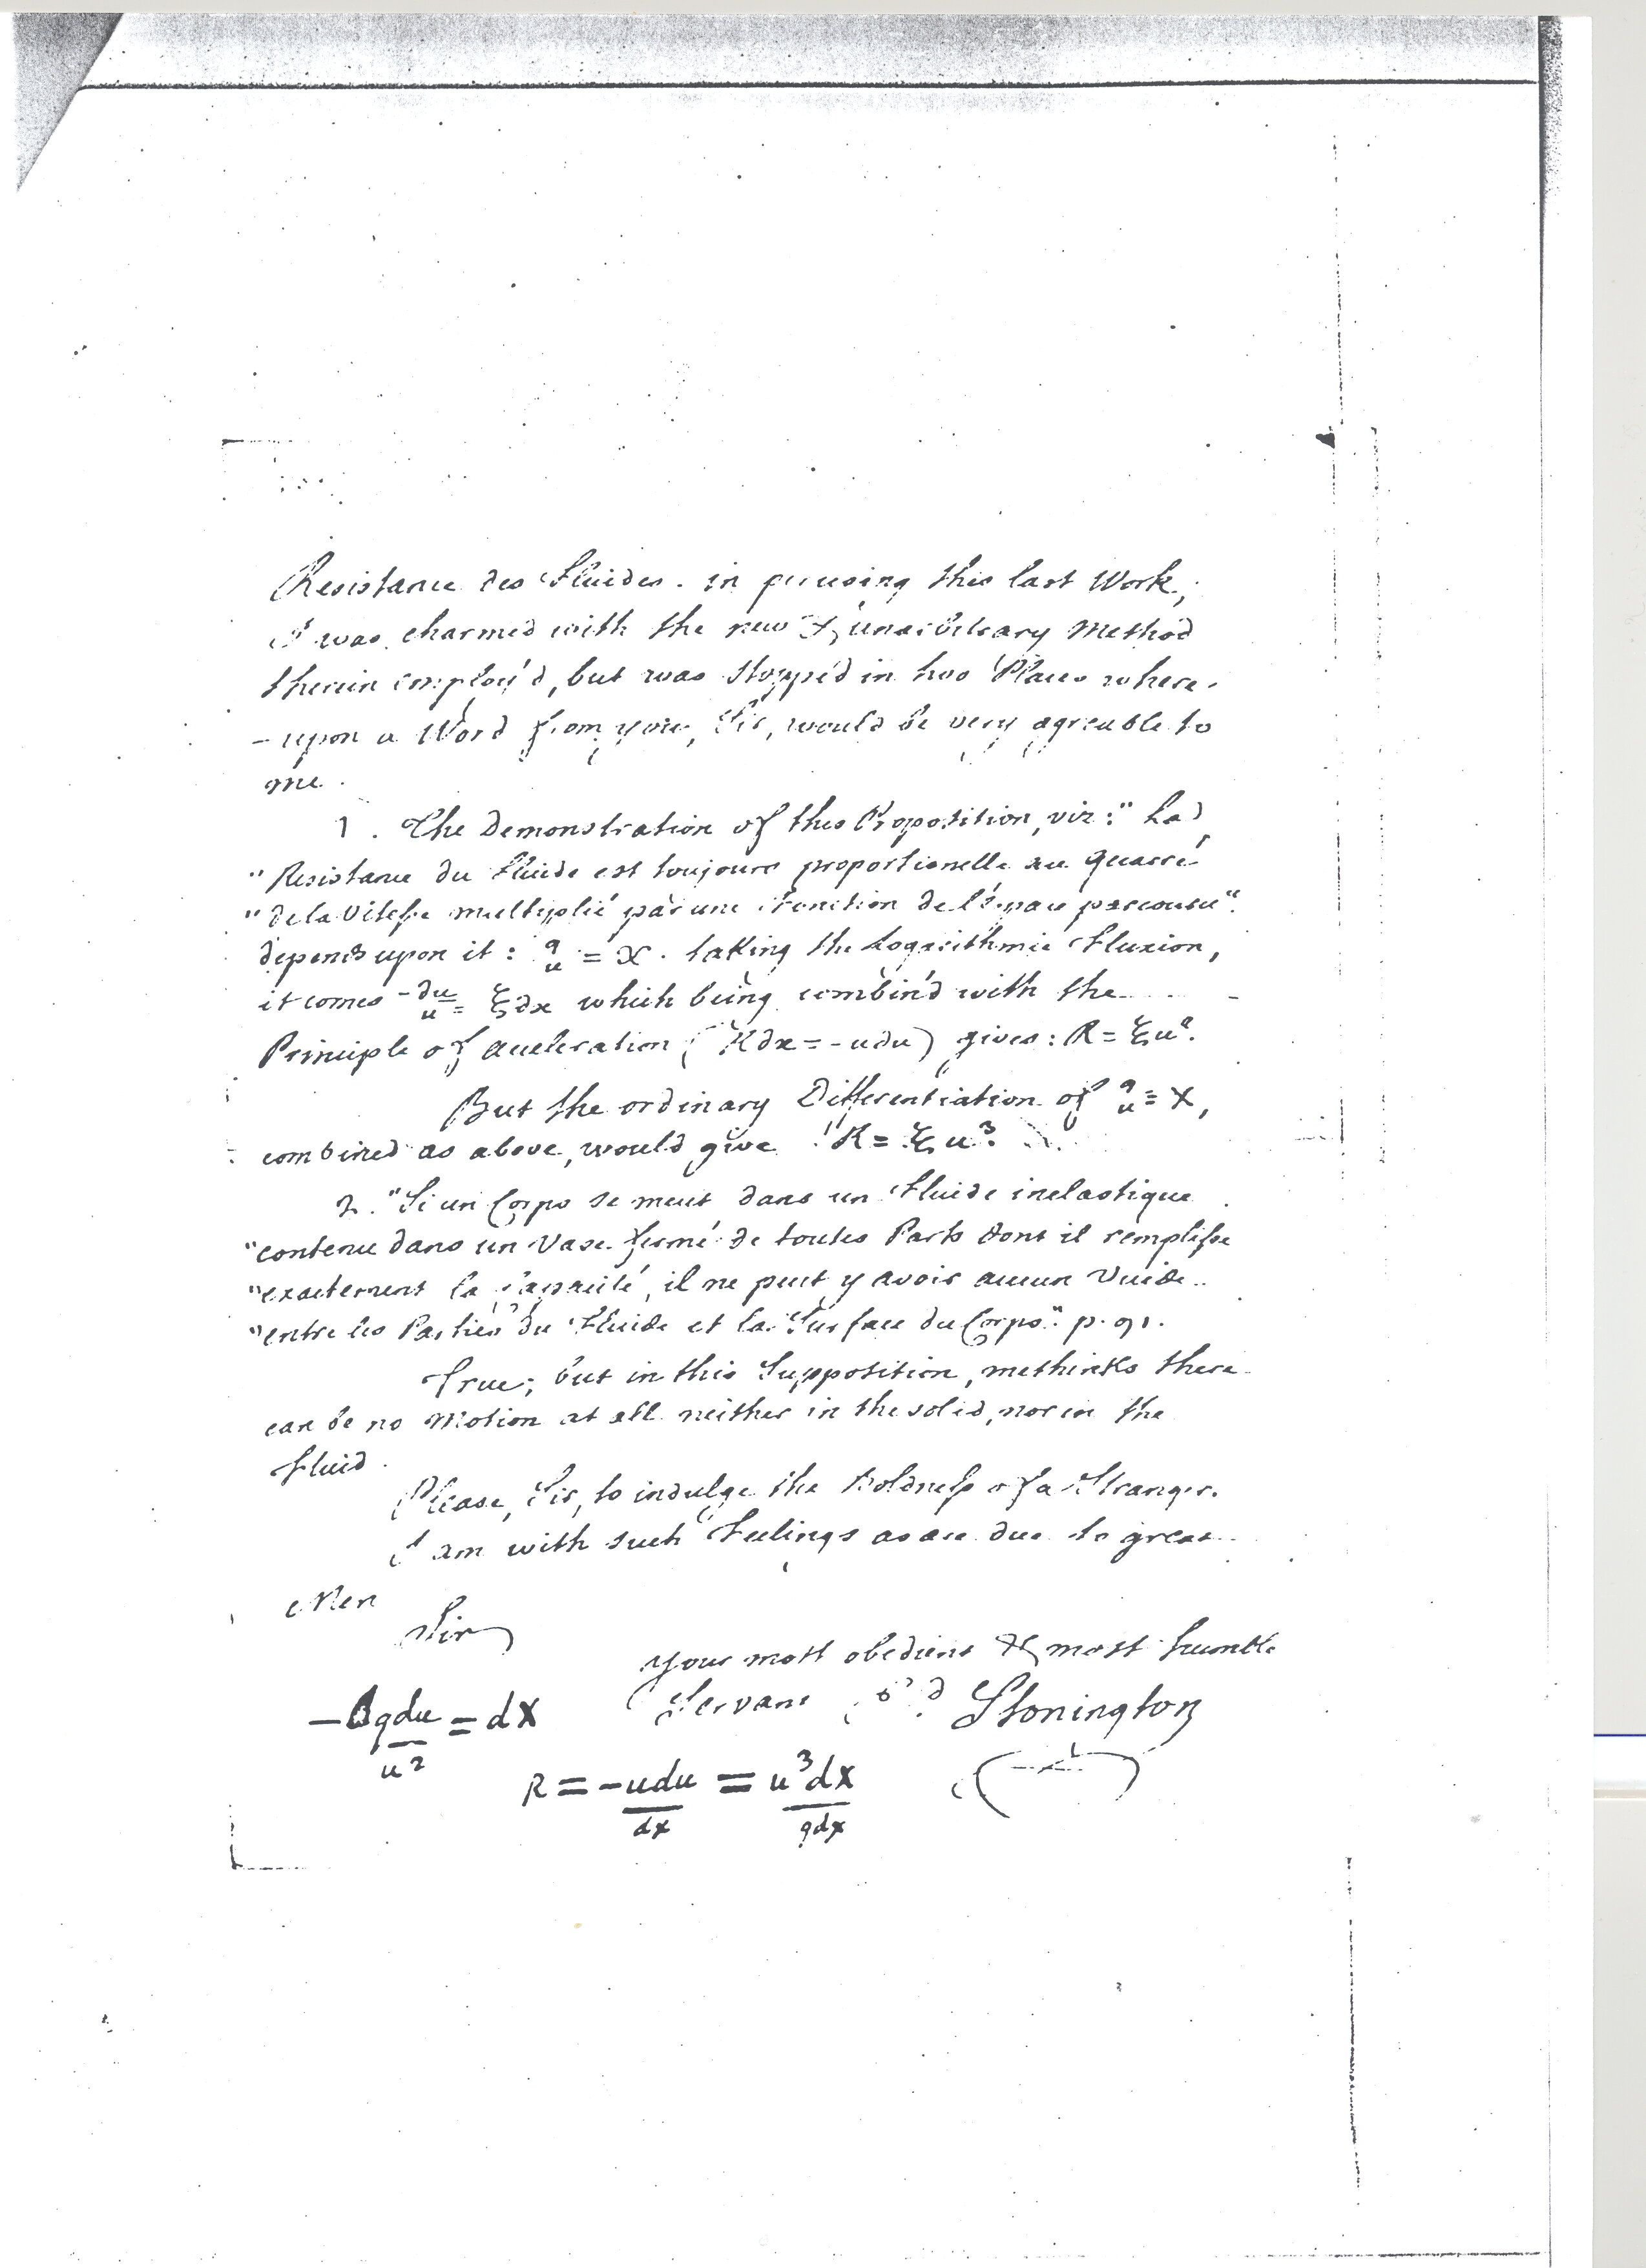 Resistance des Fluides. in perusing this last Work,
I was charmed with the new & Method
therein employ'd, but was stopp'd in two Places where-
-upon a Word from you, Sir, would be very agreable to
me.
1. The Demonstration of this Proposition, viz: "La
"Resistance du Fluide est toujours proportionelle au Quarré
"de la Vitesse multiplié par une Fonction de l'Espace parcouru".
depends upon it: g/u = X. taking the Logarithmic Fluxion,
it comes -du/u = ξdx which being combin'd with the
Principle of Acceleration (Rdx = -udu) gives: R = ξu².
But the ordinary Differentiation of g/u = X,
combined as above, would give R = ξu³.
2. "Si un Corps se meut dans un Fluide inelastique
"contenu dans un Vase fermé de toutes Parts dont il remplisse
"exactement la Capacité, il ne peut y avoir aucun Vuide
"entre les Parties du Fluide et la Surface du Corps." p. 91.
True; but in this Supposition, methinks there
can be no Motion at all neither in the solid, nor in the
Fluid.
Please, Sir, to indulge the Boldness of a Stranger.
I am with such Feelings as are due to great
Men
Sir
your most obedient & most humble
Servant Stonington
-gdu/u² = dX
R = -udu/dx = u³dX/gdx